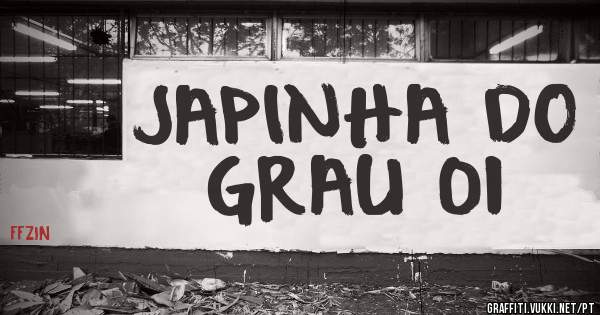 JAPINHA DO
GRAU OI
FFZIN
GRAFFITI.VUKKI.NET/PT